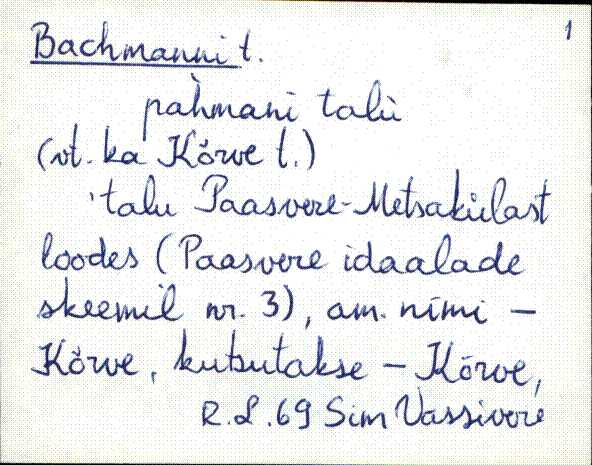 1
Bachmanni t.
pàhmani talu
(vt. ka Kõrve t.)
'talu Paasvere-Metsakülast
loodes (Paasvere idaalade
skeemil nr. 3), am. nimi –
Kõrve, kutsutakse – Kõrve,
R.L.69 Sim Vassivere